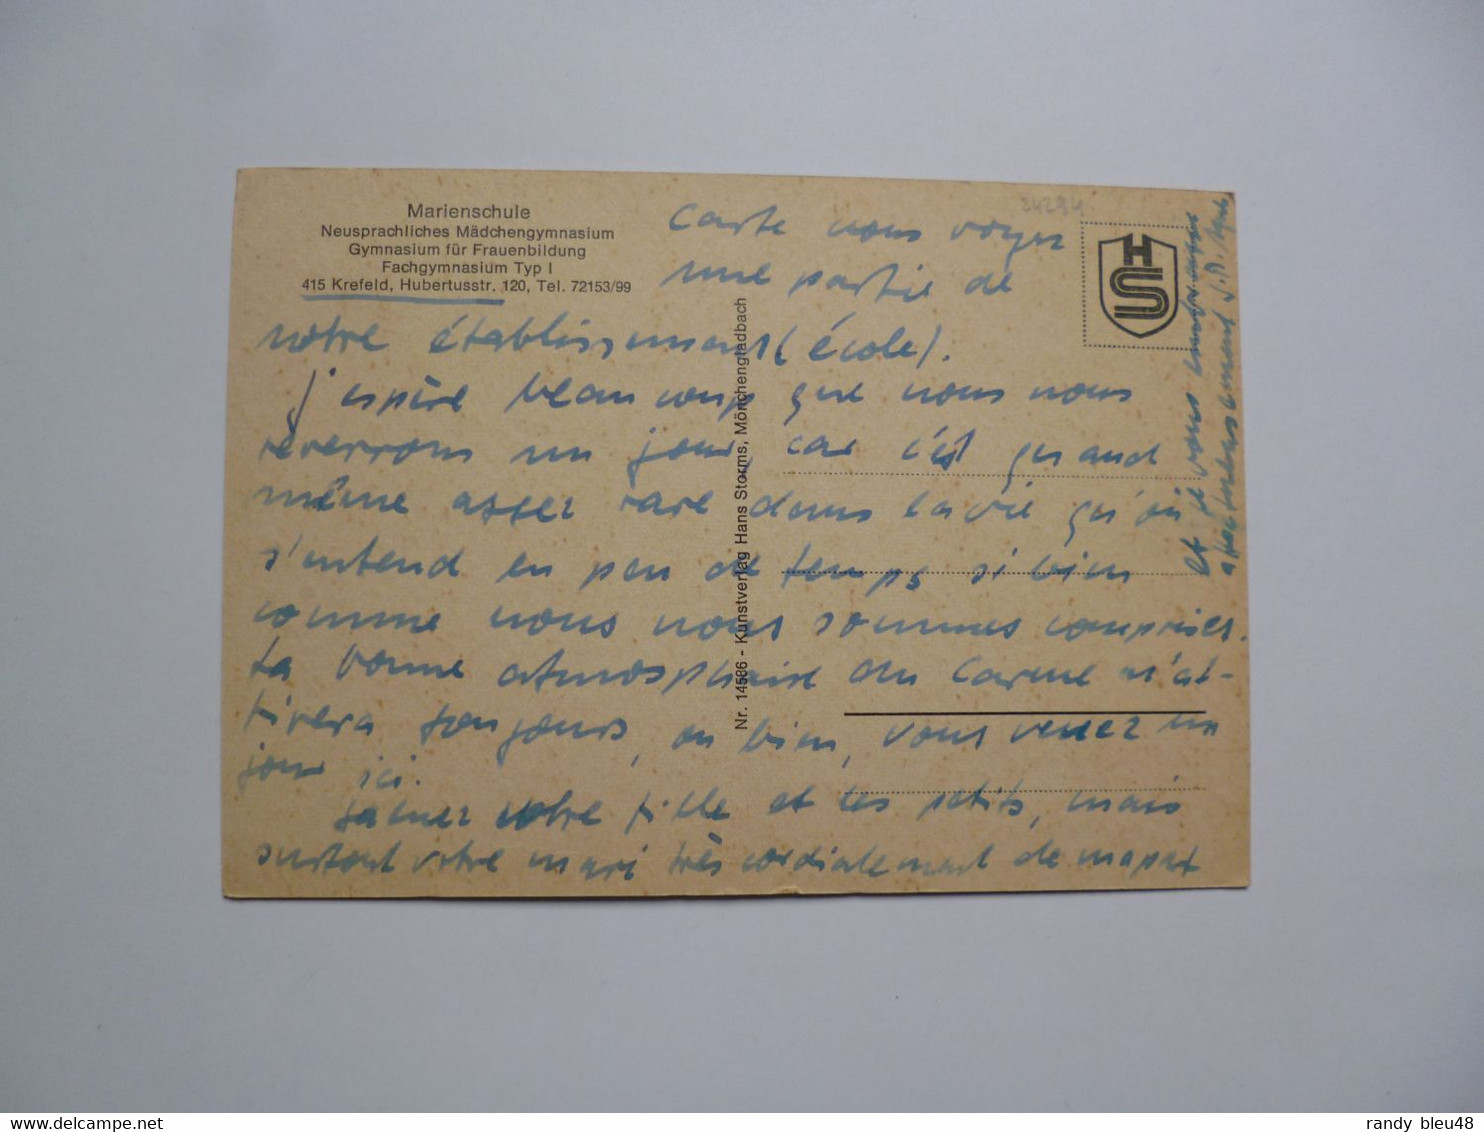 Marienschule
Neusprachliches Mädchengymnasium
Gymnasium für Frauenbildung
Fachgymnasium Typ I
415 Krefeld, Hubertusstr. 120, Tel. 72153/99
34294
HS
Nr. 14586 - Kunstverlag Hans Storms, Mönchengladbach
carte vous voyez
une partie de
notre établissement (école).
J'espère beaucoup que nous nous
reverrons un jour, car c'est quand
même assez rare dans la vie qu'on
s'entend en peu de temps si bien
comme nous nous sommes comprises.
La bonne atmosphaire du Carmel m'at-
tirera toujours, ou bien, vous venez un
jour ici.
Saluez votre fille et les petits, mais
surtout votre mari très cordialement de ma part
et je vous
affectueusement
delcampe.net
randy_bleu48